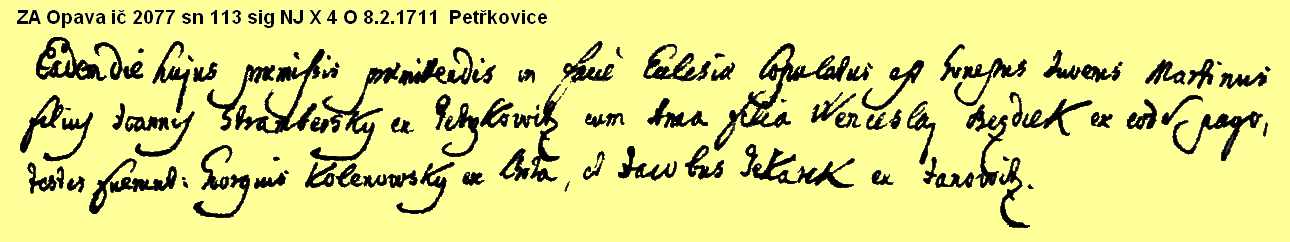 ZA Opava ič 2077 sn 113 sig NJ X 4 O 8.2.1711 Petřkovice
Eadem die hujus præmissis præmittendis in facie Eclesiæ Copulatus est honestus Iuvenis Martinus
filius Ioannis Strambersky ex Petrzkowitz cum Anna filia Wenceslaj Bezdiek ex eodem pago,
testes fuerunt: Georgius Kolenowsky ex , et Iacobus Pekarek ex Janowitz.